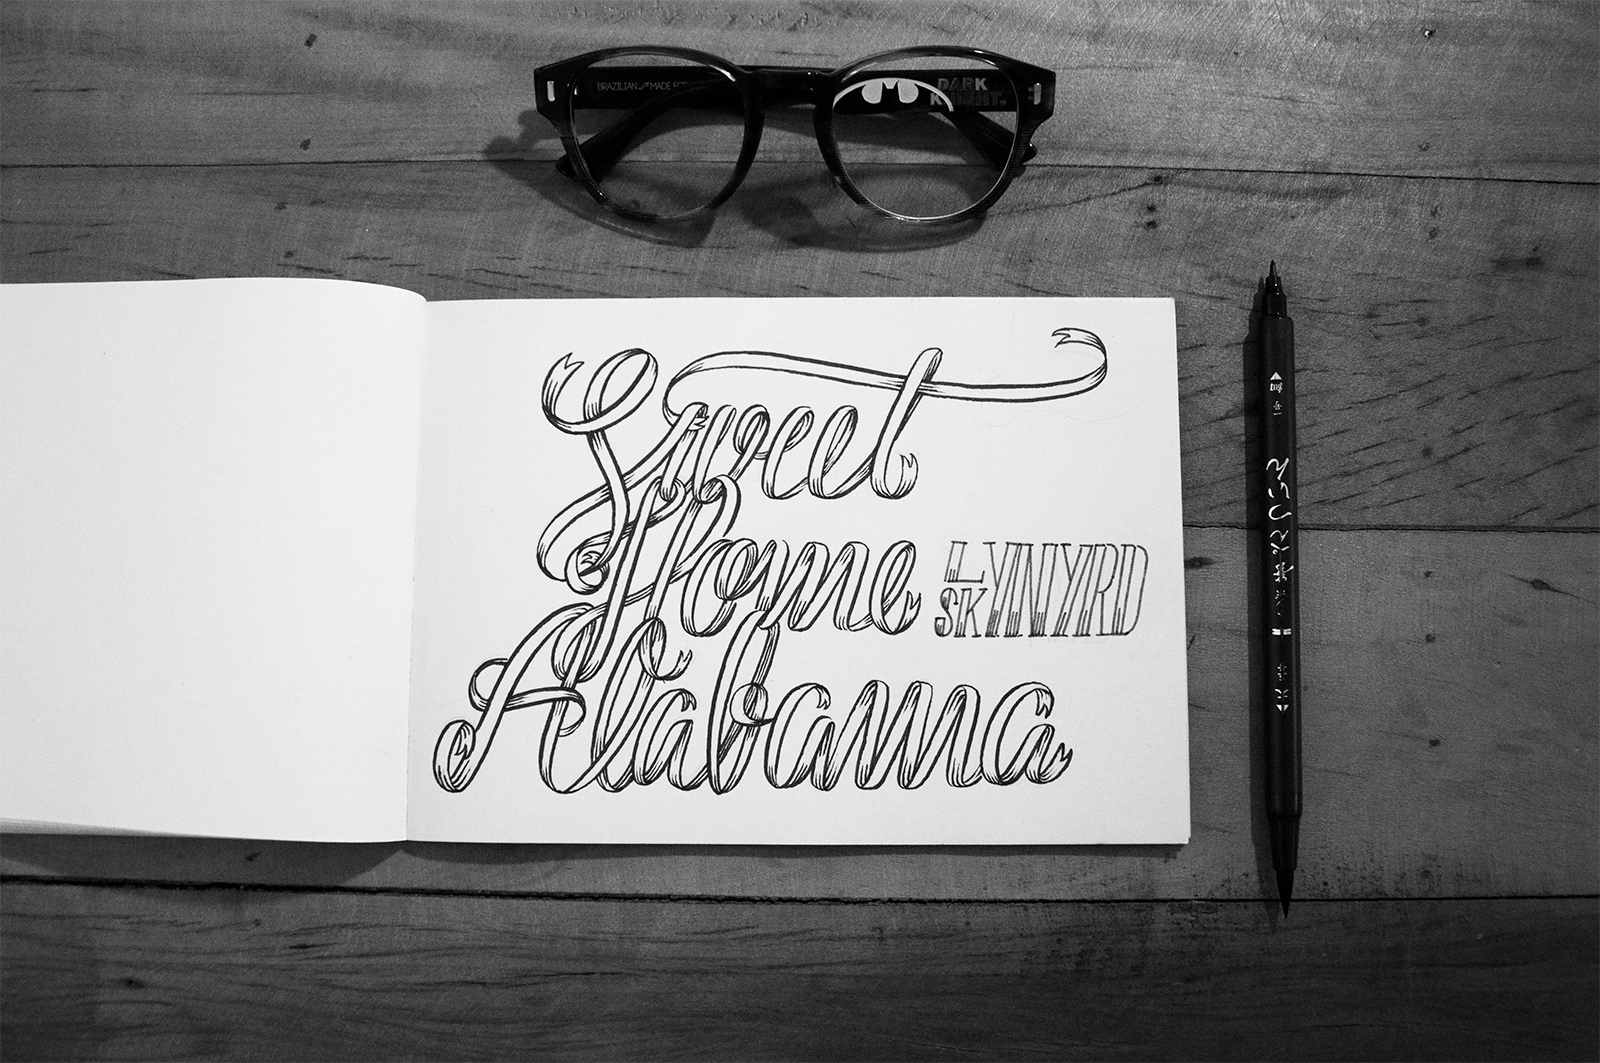 BRAZILIAN MADE FOR
DARK
KNIGHT.
Sweet
Home
LYNYRD
SKYNYRD
Alabama